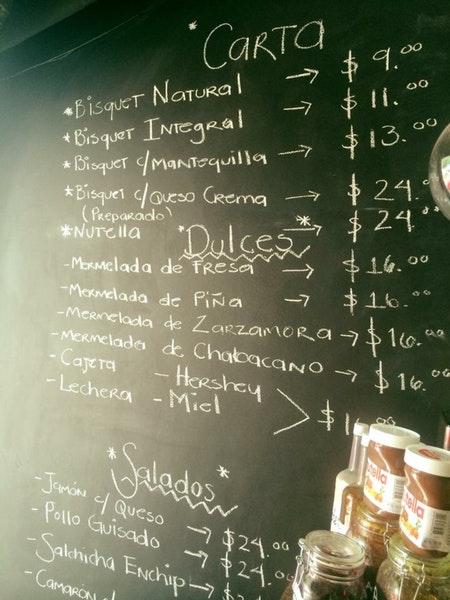 * CARTA
*BISQUET NATURAL → $ 9.00
*BISQUET INTEGRAL → $ 11.00
*BISQUET C/MANTEQUILLA → $ 13.00
*BISQUET C/QUESO CREMA → $ 24.00
(PREPARADO)
*NUTELLA → $ 24.00
*DULCES*
-MERMELADA DE FRESA → $ 16.00
-MERMELADA DE PIÑA → $ 16.00
-MERMELADA DE ZARZAMORA → $ 16.00
-MERMELADA DE CHABACANO → $ 16.00
-CAJETA -HERSHEY
-LECHERA -MIEL
*Salados*
-JAMÓN C/QUESO → $24.00
-POLLO GUISADO → $24.00
-SALCHICHA ENCHIP →
-CAMARÓN